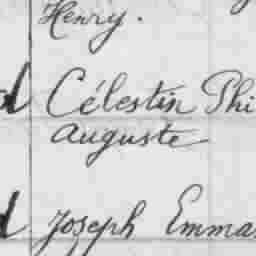 Henry.
d Célestin Phi
Auguste
d Joseph Emma